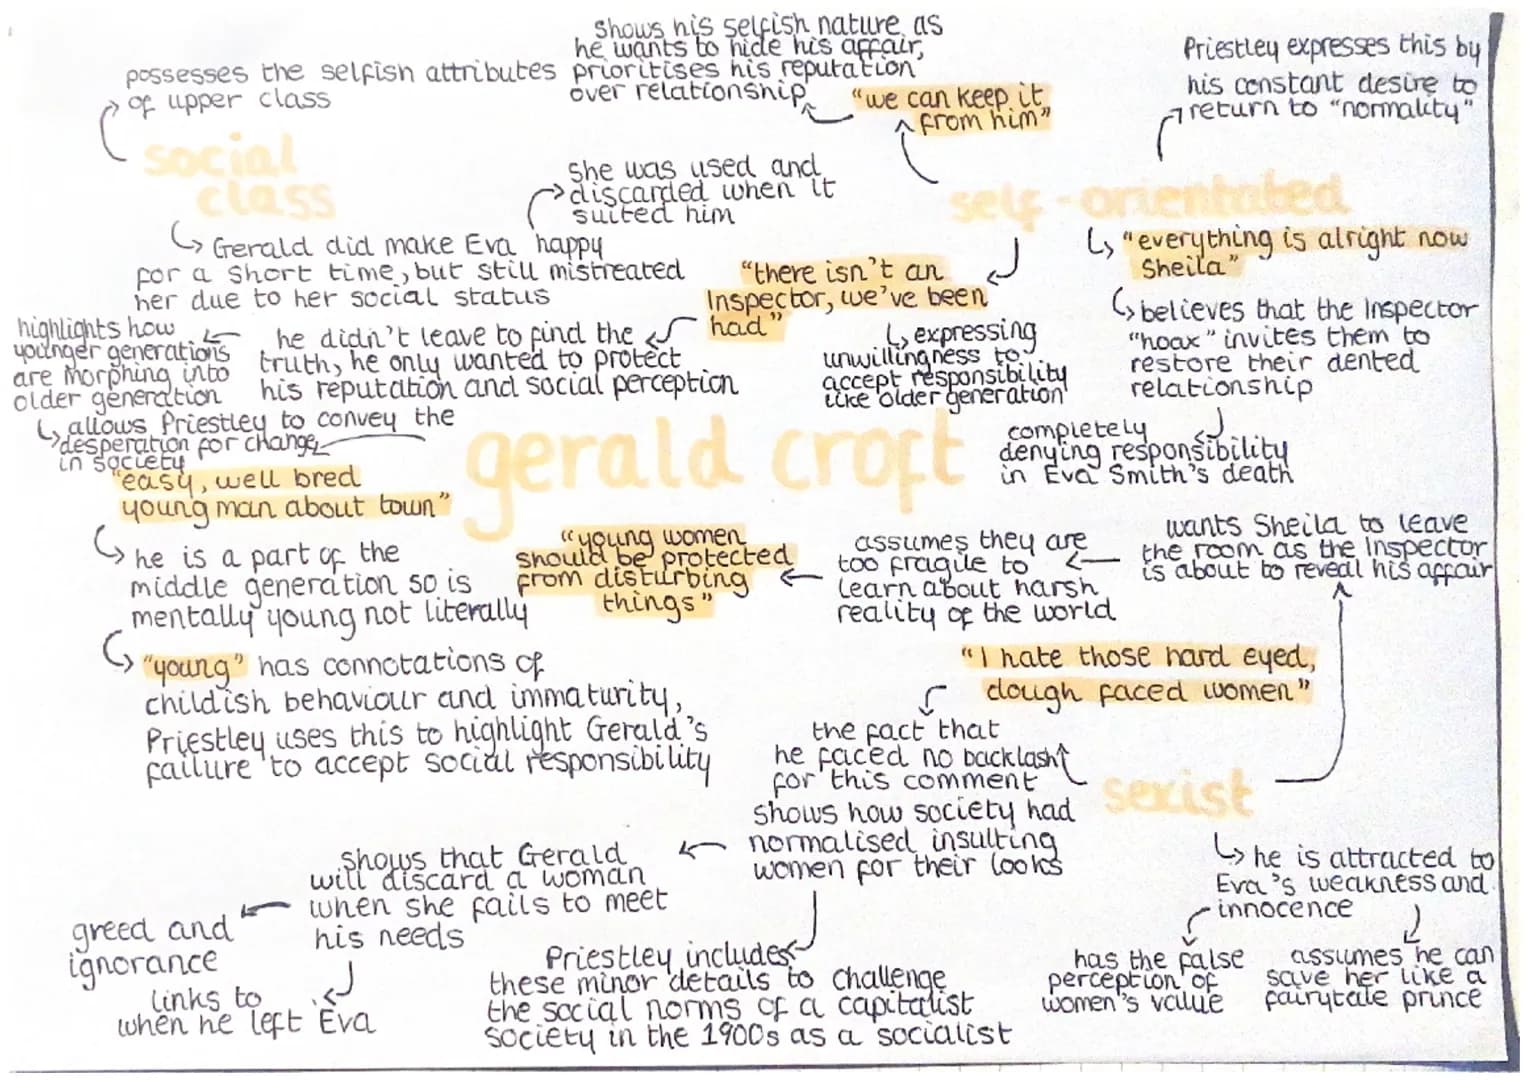 possesses the selfish attributes
of upper class
social
class
Gerald did make Eva happy
for a short time, but still mistreated
her due to her social status
she was used and
discarded when it
suited him
shows his selfish nature as
he wants to hide his affair,
prioritises his reputation
over relationship
"we can keep it
from him"
Priestley expresses this by
his constant desire to
return to "normality"
self-orientated
"everything is alright now
Sheila"
believes that the Inspector
"hoax" invites them to
restore their dented
relationship
completely
denying responsibility
in Eva Smith's death
"there isn't an
Inspector, we've been
had"
expressing
unwillingness to
accept responsibility
like older generation
he didn't leave to find the
truth, he only wanted to protect
his reputation and social perception
highlights how
younger generations
are morphing into
older generation
allows Priestley to convey the
desperation for change
in society
gerald croft
"easy, well bred
young man about town"
he is a part of the
middle generation so is
mentally young not literally
"young" has connotations of
childish behaviour and immaturity,
Priestley uses this to highlight Gerald's
failure to accept social responsibility
"young women
should be protected
from disturbing
things"
assumes they are
too fragile to
learn about harsh
reality of the world
wants Sheila to leave
the room as the Inspector
is about to reveal his affair
"I hate those hard eyed,
dough faced women"
the fact that
he faced no backlash
for this comment
shows how society had
normalised insulting
women for their looks
sexist
he is attracted to
Eva's weakness and
innocence
has the false
perception of
women's value
assumes he can
save her like a
fairytale prince
shows that Gerald
will discard a woman
when she fails to meet
his needs
greed and
ignorance
links to
when he left Eva
Priestley includes
these minor details to challenge
the social norms of a capitalist
society in the 1900s as a socialist